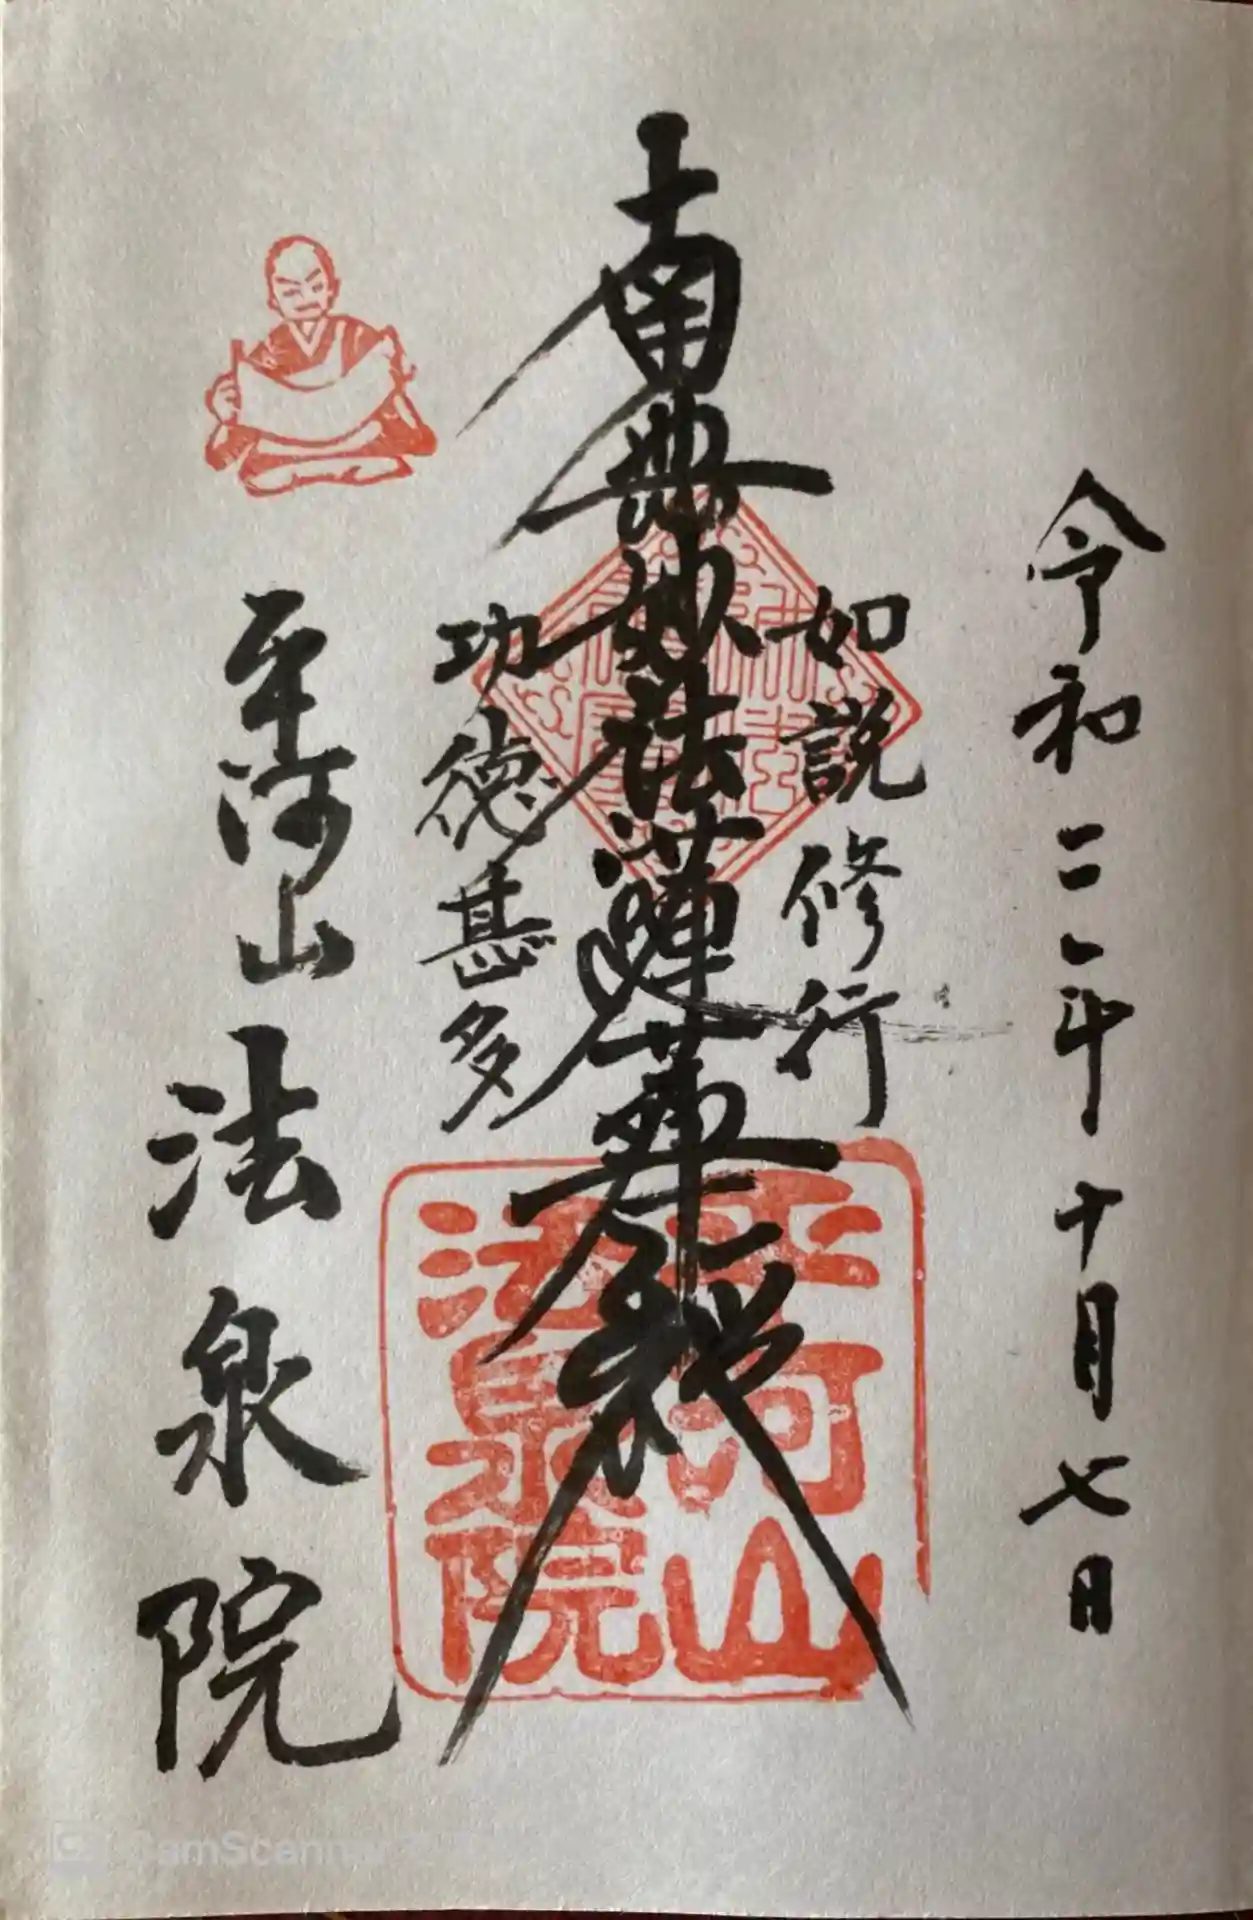 令和二年十月七日
如説修行
南無妙法蓮華経
功徳甚多
平河山
法泉院
平河山
法泉院
CamScanner